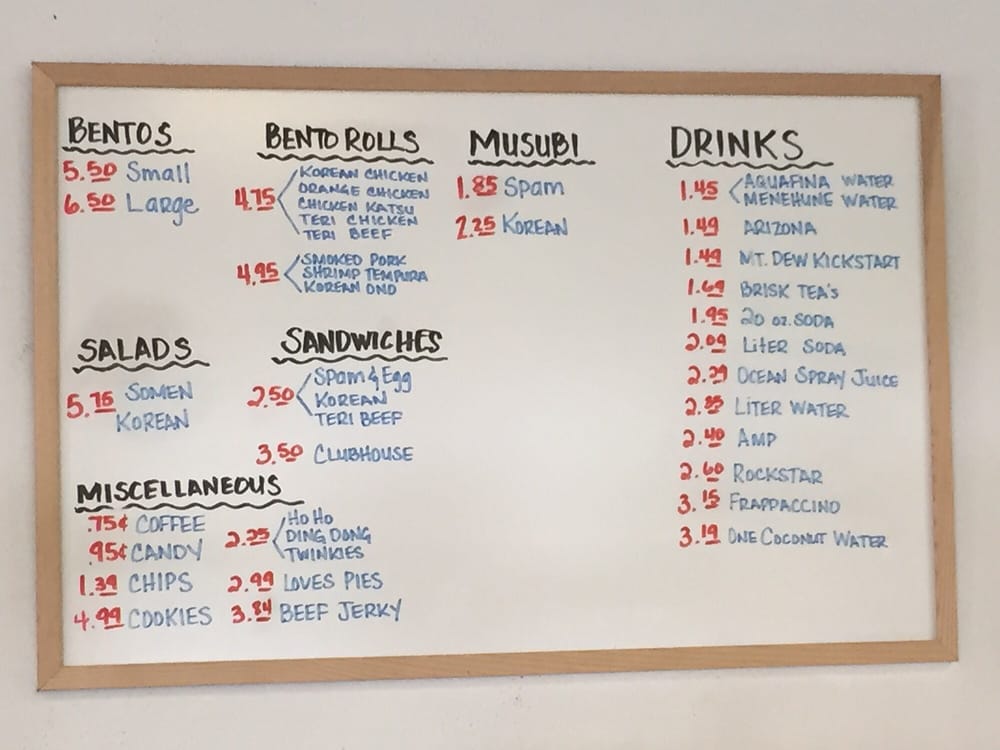 BENTOS
5.50 Small
6.50 Large
BENTO ROLLS
4.75
KOREAN CHICKEN
ORANGE CHICKEN
CHICKEN KATSU
TERI CHICKEN
TERI BEEF
4.95
SMOKED PORK
SHRIMP TEMPURA
KOREAN OND
MUSUBI
1.85 Spam
2.25 KOREAN
DRINKS
1.45
AQUAFINA WATER
MENEHUNE WATER
1.49 ARIZONA
1.49 MT. DEW KICKSTART
1.69 BRISK TEA'S
1.95 20 oz. SODA
2.09 LiTER SODA
2.29 OCEAN SPRAY JUICE
2.85 LITER WATER
2.40 AMP
2.60 ROCKSTAR
3.15 FRAPPACCINO
3.19 ONE COCONUT WATER
SALADS
5.75 SOMEN
KOREAN
SANDWICHES
2.50
Spam & Egg
KOREAN
TERI BEEF
3.50 CLUBHOUSE
MISCELLANEOUS
.75¢ COFFEE
.95¢ CANDY
1.39 CHIPS
4.99 COOKIES
2.25
HO HO
DING DONG
TWINKIES
2.99 LOVES PIES
3.84 BEEF JERKY